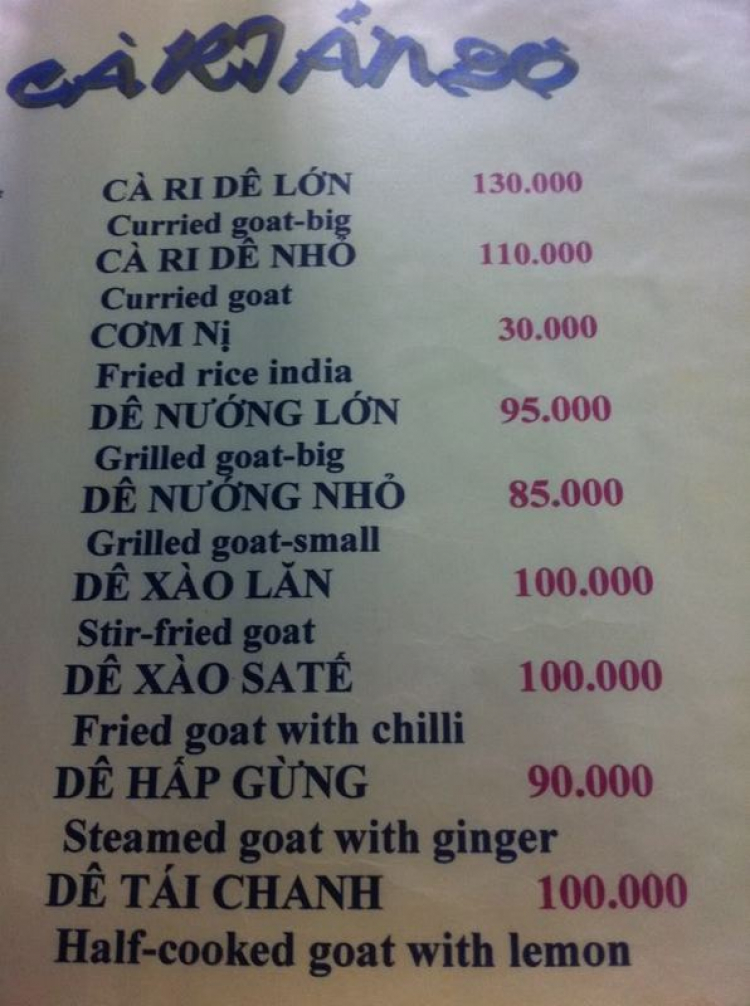 CÀ RI ẤN ĐỘ
CÀ RI DÊ LỚN 130.000
Curried goat-big
CÀ RI DÊ NHỎ 110.000
Curried goat
CƠM Nị 30.000
Fried rice india
DÊ NƯỚNG LỚN 95.000
Grilled goat-big
DÊ NƯỚNG NHỎ 85.000
Grilled goat-small
DÊ XÀO LĂN 100.000
Stir-fried goat
DÊ XÀO SATẾ 100.000
Fried goat with chilli
DÊ HẤP GỪNG 90.000
Steamed goat with ginger
DÊ TÁI CHANH 100.000
Half-cooked goat with lemon